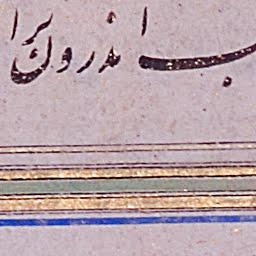 ب اندرون برا